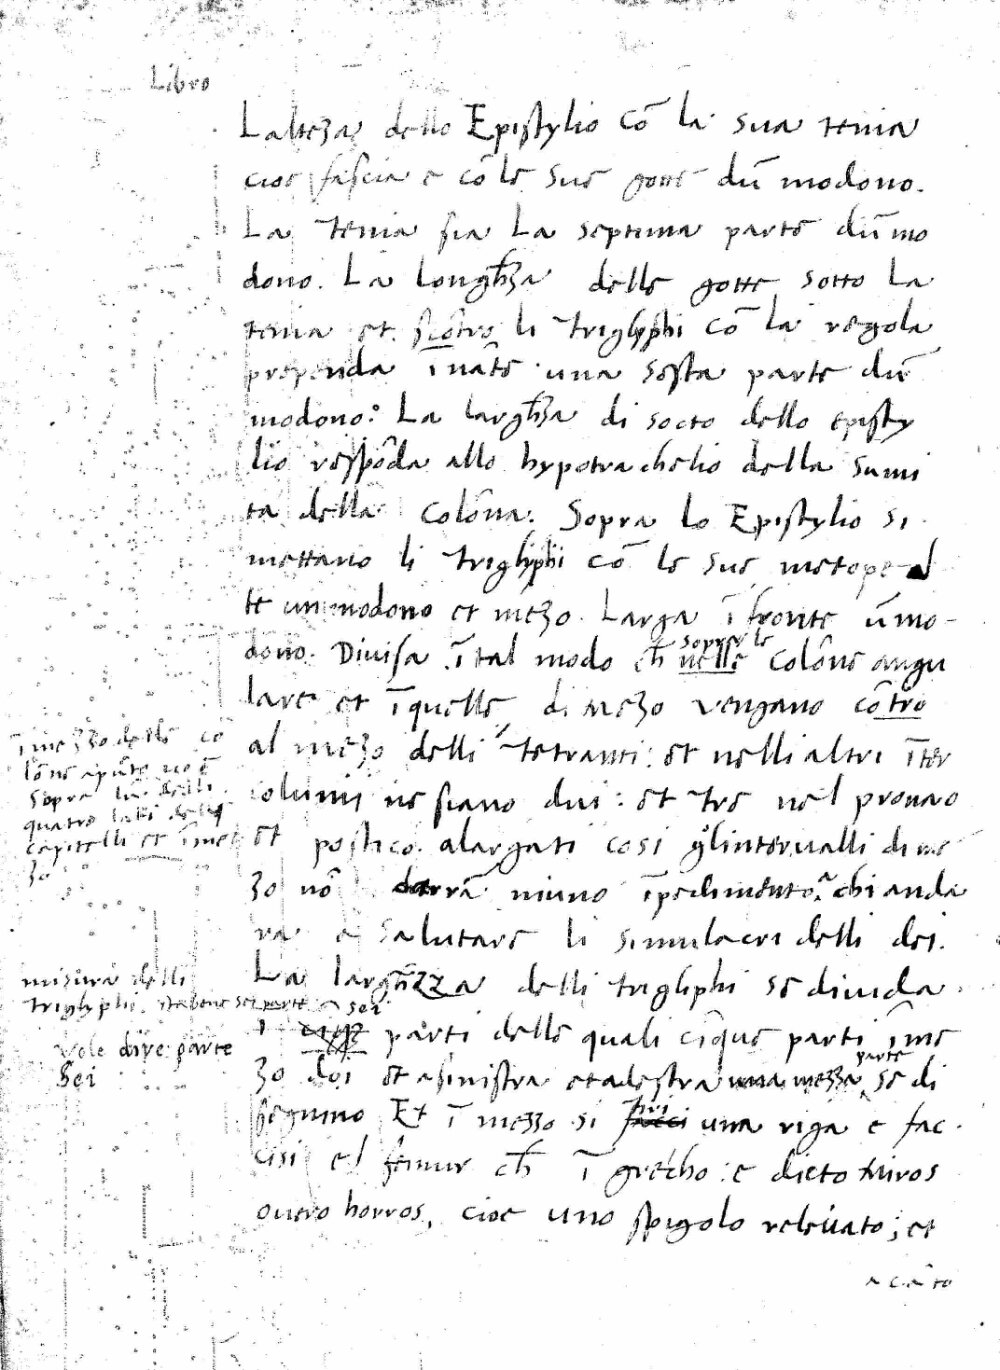 Libro
Lalteza dello Epistylio cō la sua tenia
cioe fascia e cō le sue gotte dū modono.
La tenia sia La septima parte dū mo
dono. La longħza delle gotte sotto La
tenia et scōtro li triglyphi cō la regola
prependa īnāte una sesta parte dū
modono: La largħza di socto dello episty
lio respōda allo hypotrachelio della sumi
ta della Colōna: Sopra lo Epistylio si
mettano li triglyphi cō le sue metope al
te un modono et mezo. Larga ī fronte ū mo-
dono. Divisa ītal modo cħ nelle sopra le Colōne angu
lare et īquelle di mezo vengano cōtro
al mezo delli tetranti: et nelli altri īter
columnii ne siano dui: et tre nel pronao
et postico. alargati cosi gl'intervalli di me
zo nō darrā niuno īpedimēto a chi anda
ra a salutare li simulacri delli dei.
La largħzza delli trigliphi se divida
ī sei parti delle quali cīque parti ī me
zo doi et asinistra et adestra una mezza parte se di
segnino Et ī mezzo si una riga e fac
cisi el femur cħ ī grecho: e dicto miros
overo horros, cioe uno spigolo relevato; et
a cāto
ī mezzo delle co
lōne apūto no ē
sopra li delli
quatro lati delli
capitelli et ī mez
zo
misura delli
triglyphi sta bene sei parte
vole dire parte
sei